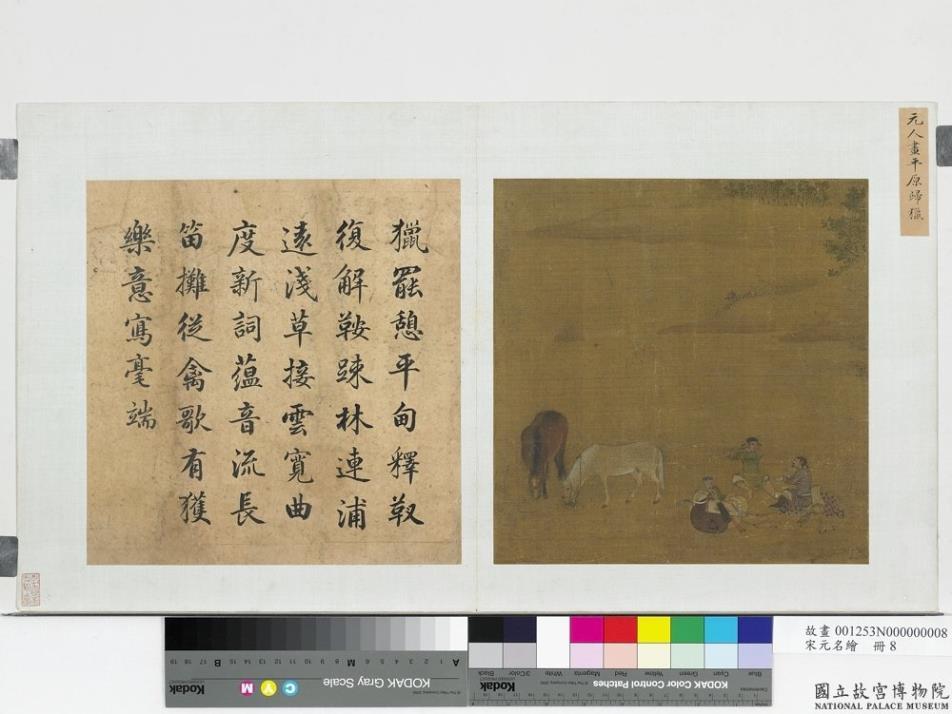 元人畫平原歸獵
獵罷憩平甸釋靫
復解鞍踈林連浦
遠淺草接雲寬曲
度新詞蘊音流長
笛攤從禽歌有獲
樂意寫毫端
故畫 001253N000000008
宋元名繪 冊 8
國立故宮博物院
NATIONAL PALACE MUSEUM
KODAK Gray Scale
Kodak
A 1 2 3 4 5 6 M 8 9 10 11 12 13 14 15 B 17 18 19
C Y M
KODAK Color Control Patches
Kodak
Blue Cyan Green Yellow Red Magenta White 3/Color Black